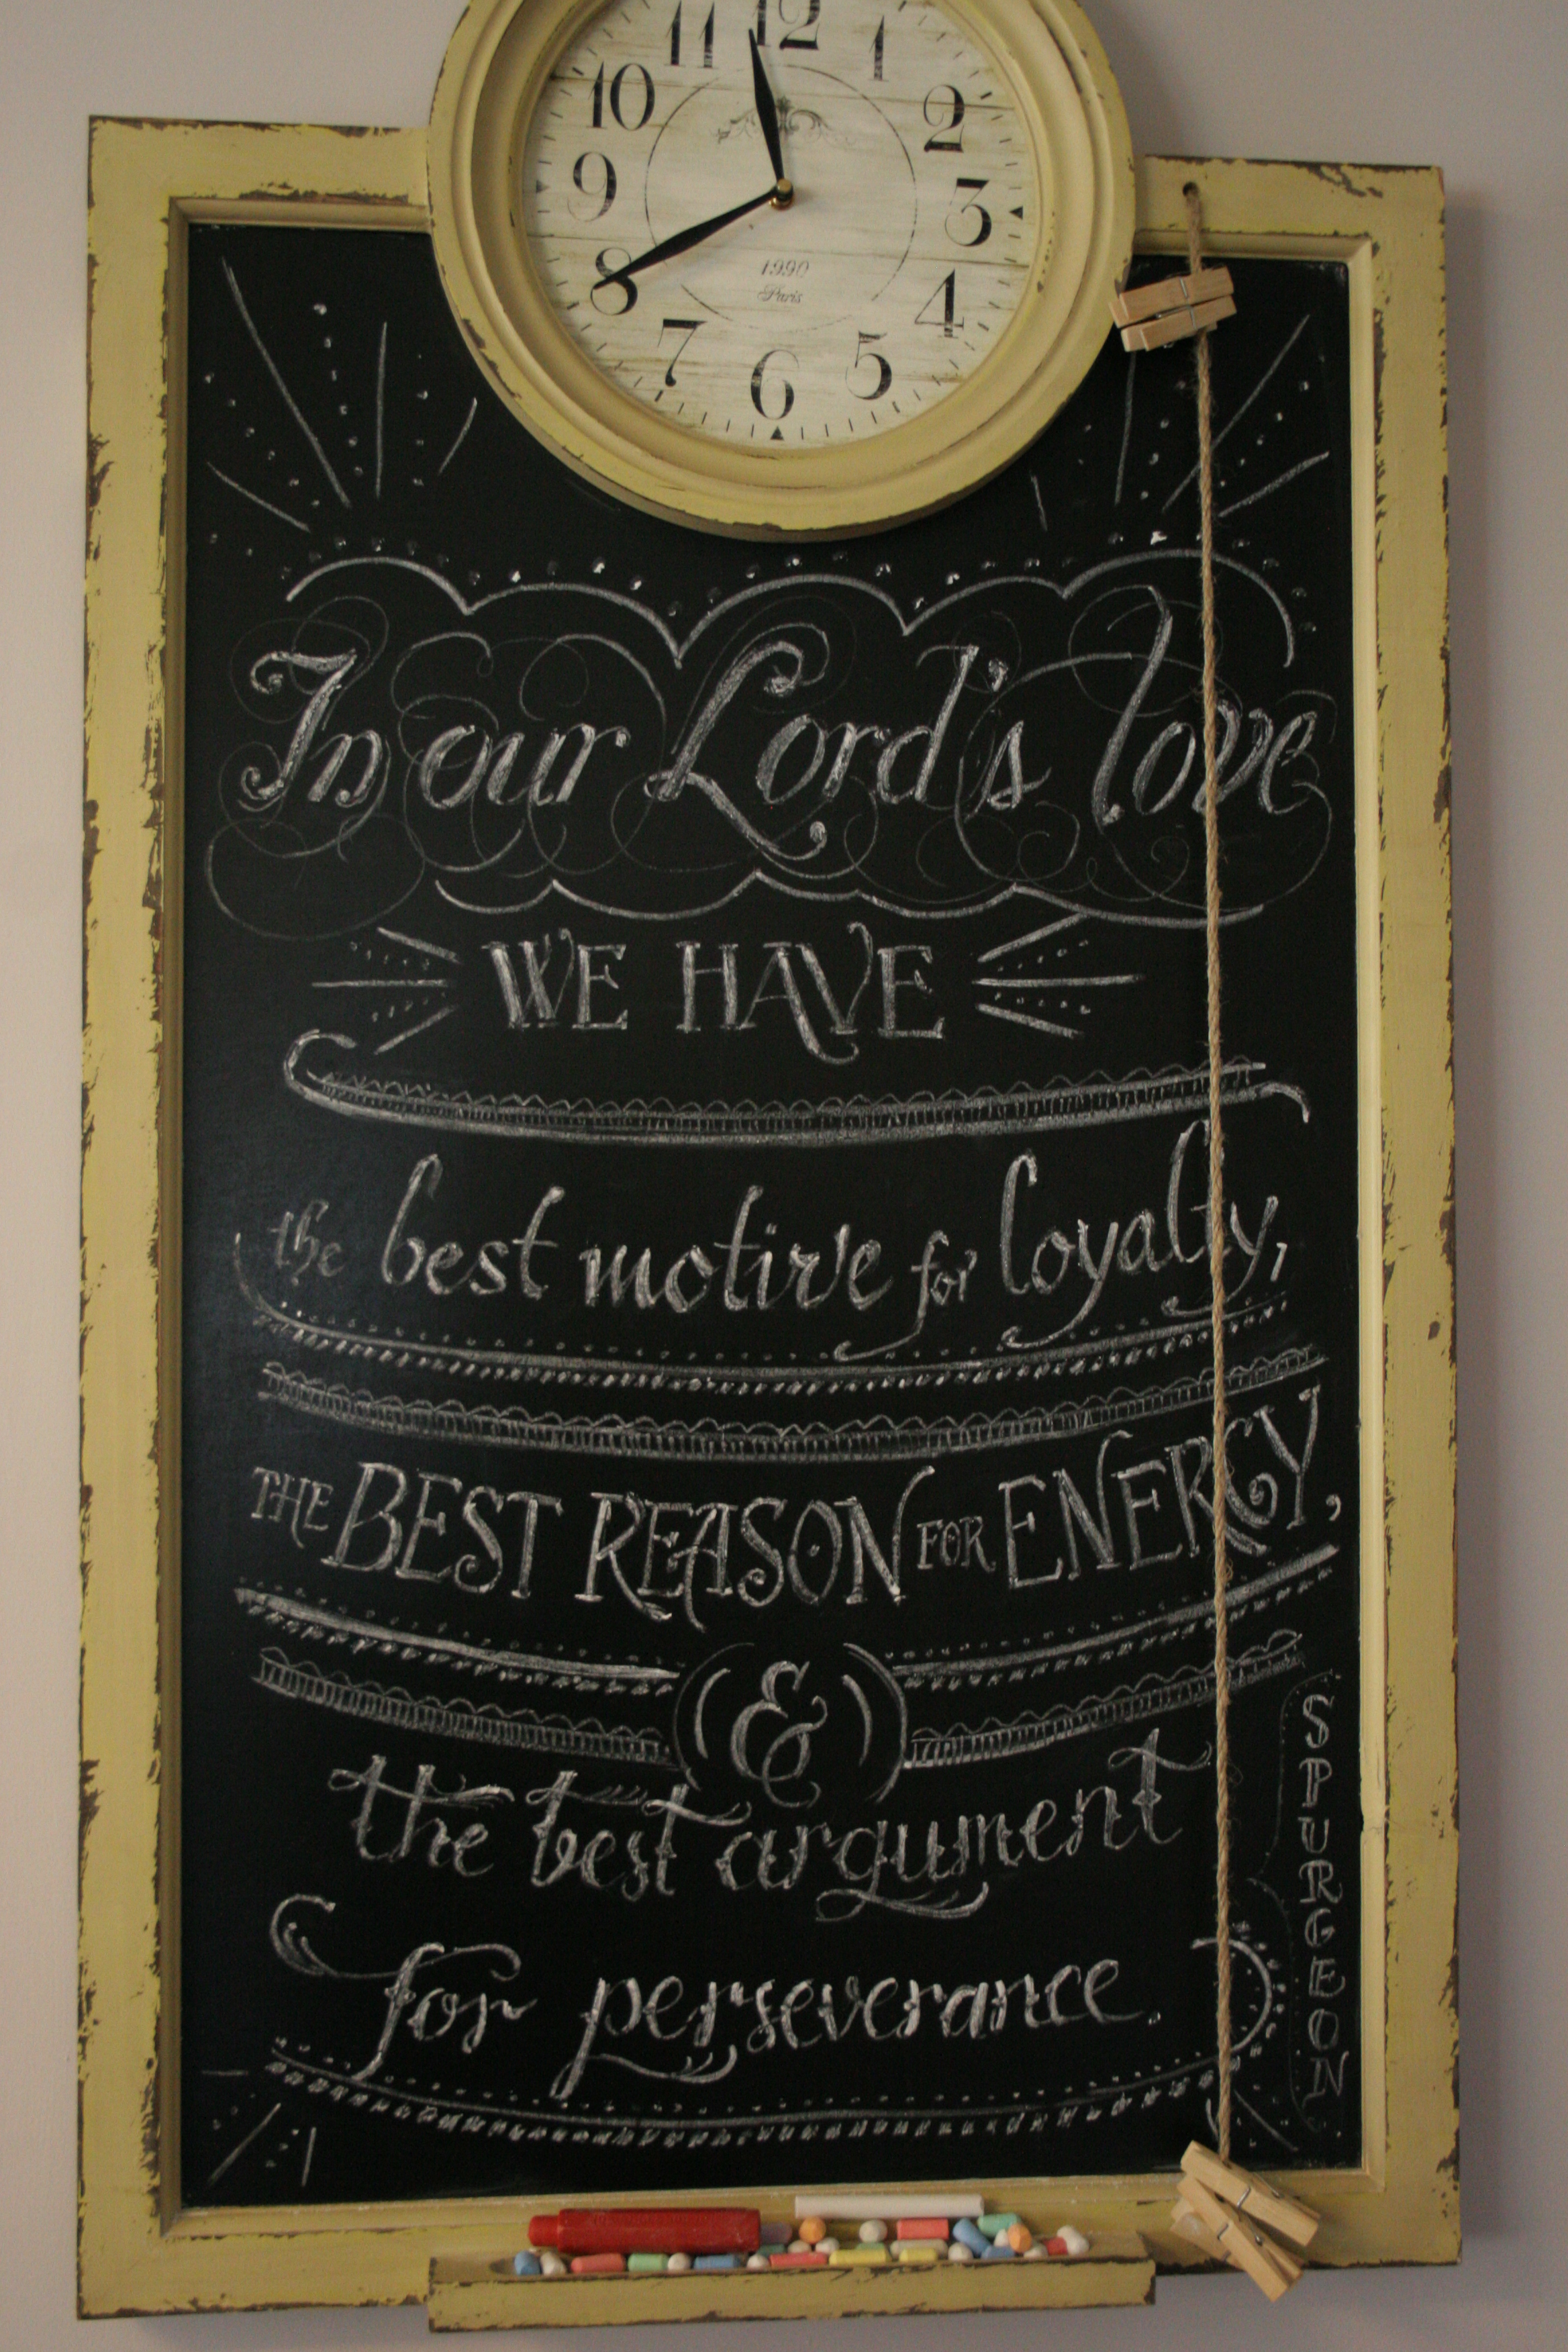 11 12 1
10 2
9 3
8 4
7 6 5
1990
Paris
In our Lord's love
WE HAVE
the best motive for loyalty,
THE BEST REASON FOR ENERGY,
&
the best argument
for perseverance.
SPURGEON